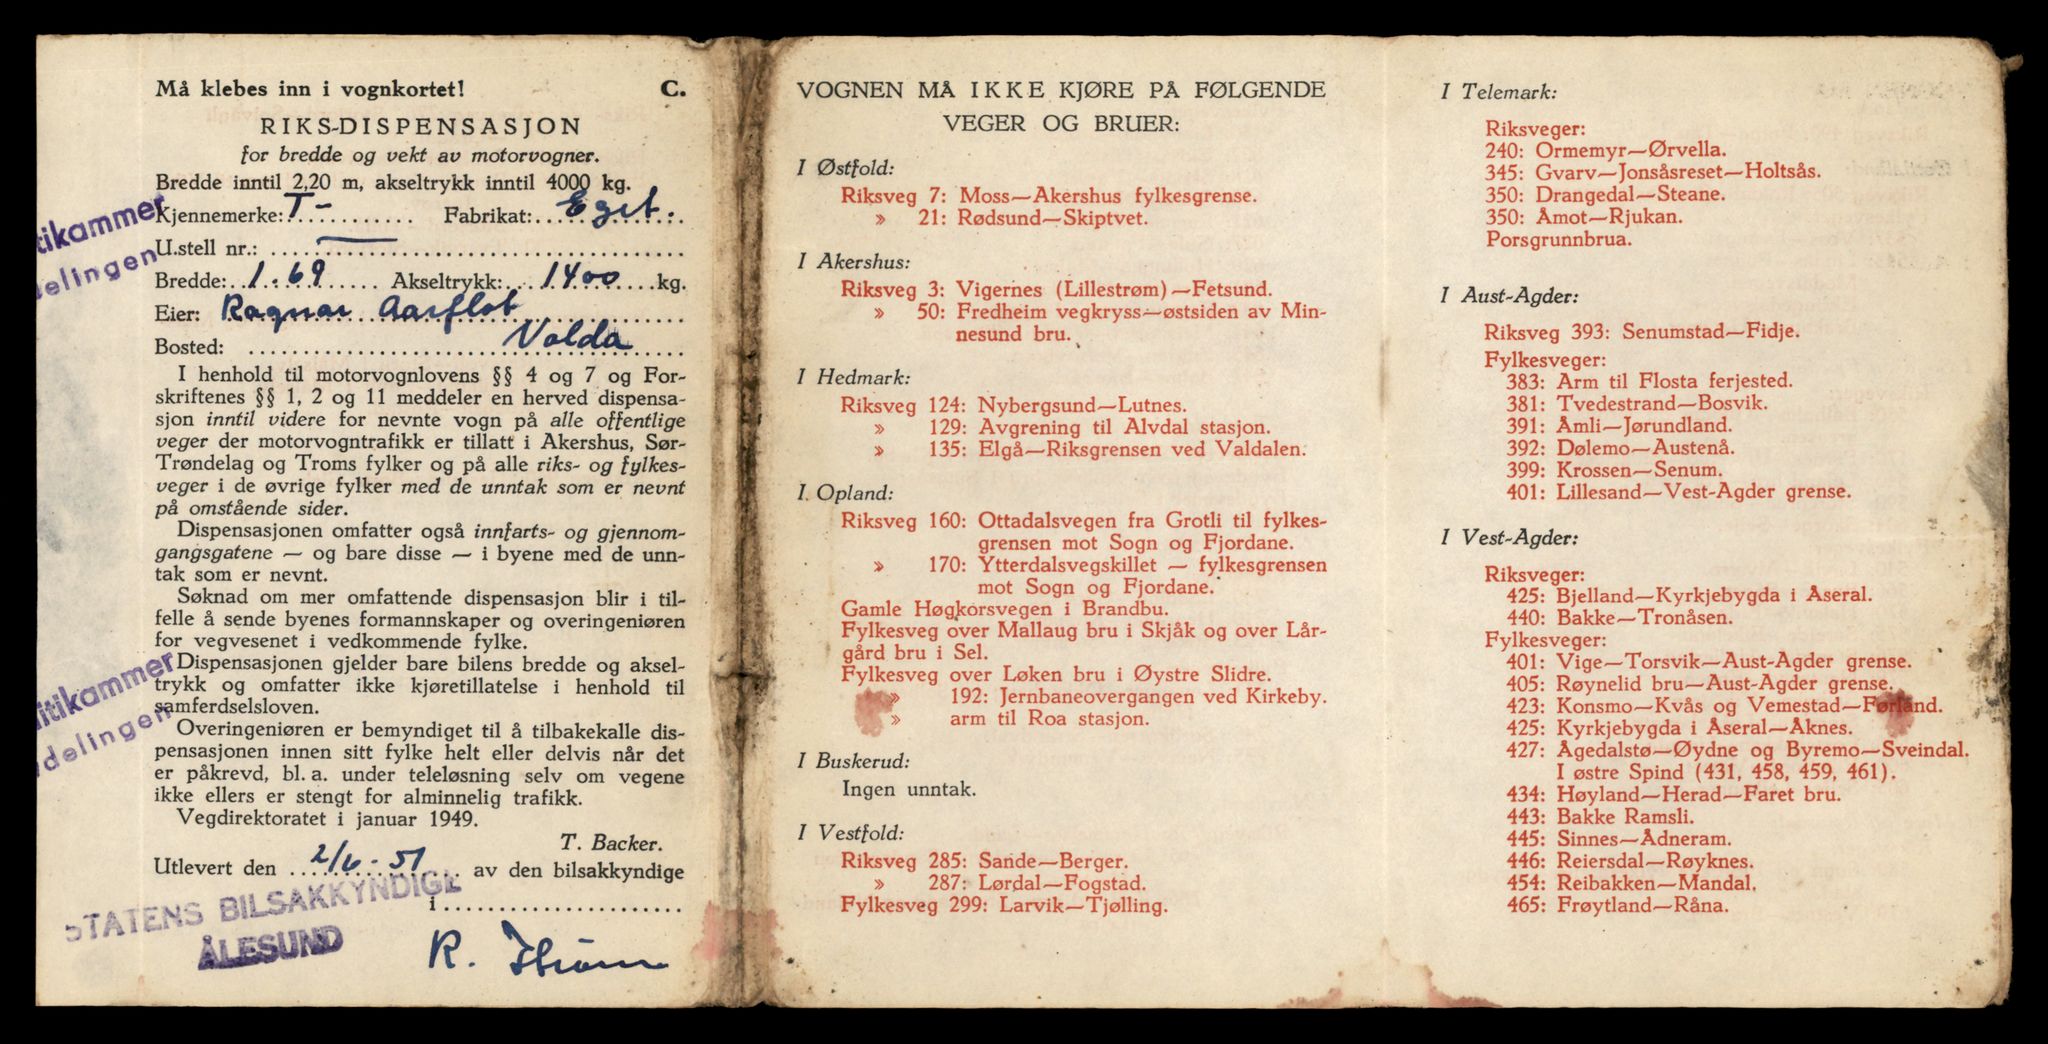 Må klebes inn i vognkortet! C.
RIKS-DISPENSASJON
for bredde og vekt av motorvogner.
Bredde inntil 2,20 m, akseltrykk inntil 4000 kg.
Kjennemerke: T- Fabrikat: Eget.
U.stell nr.: —
Bredde: 1.69 Akseltrykk: 1400 kg.
Eier: Ragnar Aarflot
Bosted: Volda
I henhold til motorvognlovens §§ 4 og 7 og For-
skriftenes §§ 1, 2 og 11 meddeler en herved dispensa-
sjon inntil videre for nevnte vogn på alle offentlige
veger der motorvogntrafikk er tillatt i Akershus, Sør-
Trøndelag og Troms fylker og på alle riks- og fylkes-
veger i de øvrige fylker med de unntak som er nevnt
på omstående sider.
Dispensasjonen omfatter også innfarts- og gjennom-
gangsgatene — og bare disse — i byene med de unn-
tak som er nevnt.
Søknad om mer omfattende dispensasjon blir i til-
felle å sende byenes formannskaper og overingeniøren
for vegvesenet i vedkommende fylke.
Dispensasjonen gjelder bare bilens bredde og aksel-
trykk og omfatter ikke kjøretillatelse i henhold til
samferdselsloven.
Overingeniøren er bemyndiget til å tilbakekalle dis-
pensasjonen innen sitt fylke helt eller delvis når det
er påkrevd, bl. a. under teleløsning selv om vegene
ikke ellers er stengt for alminnelig trafikk.
Vegdirektoratet i januar 1949.
T. Backer.
Utlevert den 2/6-51 av den bilsakkyndige
i
STATENS BILSAKKYNDIGE
ÅLESUND
R.
itikammer
delingen
litikammer
delingen
VOGNEN MÅ IKKE KJØRE PÅ FØLGENDE
VEGER OG BRUER:
I Østfold:
Riksveg 7: Moss—Akershus fylkesgrense.
» 21: Rødsund—Skiptvet.
I Akershus:
Riksveg 3: Vigernes (Lillestrøm)—Fetsund.
» 50: Fredheim vegkryss—østsiden av Min-
nesund bru.
I Hedmark:
Riksveg 124: Nybergsund—Lutnes.
» 129: Avgrening til Alvdal stasjon.
» 135: Elgå—Riksgrensen ved Valdalen.
I Opland:
Riksveg 160: Ottadalsvegen fra Grotli til fylkes-
grensen mot Sogn og Fjordane.
» 170: Ytterdalsvegskillet — fylkesgrensen
mot Sogn og Fjordane.
Gamle Høgkorsvegen i Brandbu.
Fylkesveg over Mallaug bru i Skjåk og over Lår-
gård bru i Sel.
Fylkesveg over Løken bru i Øystre Slidre.
» 192: Jernbaneovergangen ved Kirkeby.
» arm til Roa stasjon.
I Buskerud:
Ingen unntak.
I Vestfold:
Riksveg 285: Sande—Berger.
» 287: Lørdal—Fogstad.
Fylkesveg 299: Larvik—Tjølling.
I Telemark:
Riksveger:
240: Ormemyr—Ørvella.
345: Gvarv—Jonsåsreset—Holtsås.
350: Drangedal—Steane.
350: Åmot—Rjukan.
Porsgrunnbrua.
I Aust-Agder:
Riksveg 393: Senumstad—Fidje.
Fylkesveger:
383: Arm til Flosta ferjested.
381: Tvedestrand—Bosvik.
391: Åmli—Jørundland.
392: Dølemo—Austenå.
399: Krossen—Senum.
401: Lillesand—Vest-Agder grense.
I Vest-Agder:
Riksveger:
425: Bjelland—Kyrkjebygda i Åseral.
440: Bakke—Tronåsen.
Fylkesveger:
401: Vige—Torsvik—Aust-Agder grense.
405: Røynelid bru—Aust-Agder grense.
423: Konsmo—Kvås og Vemestad—Førland.
425: Kyrkjebygda i Åseral—Åknes.
427: Ågedalstø—Øydne og Byremo—Sveindal.
I østre Spind (431, 458, 459, 461).
434: Høyland—Herad—Faret bru.
443: Bakke Ramsli.
445: Sinnes—Ådneram.
446: Reiersdal—Røyknes.
454: Reibakken—Mandal.
465: Frøytland—Råna.